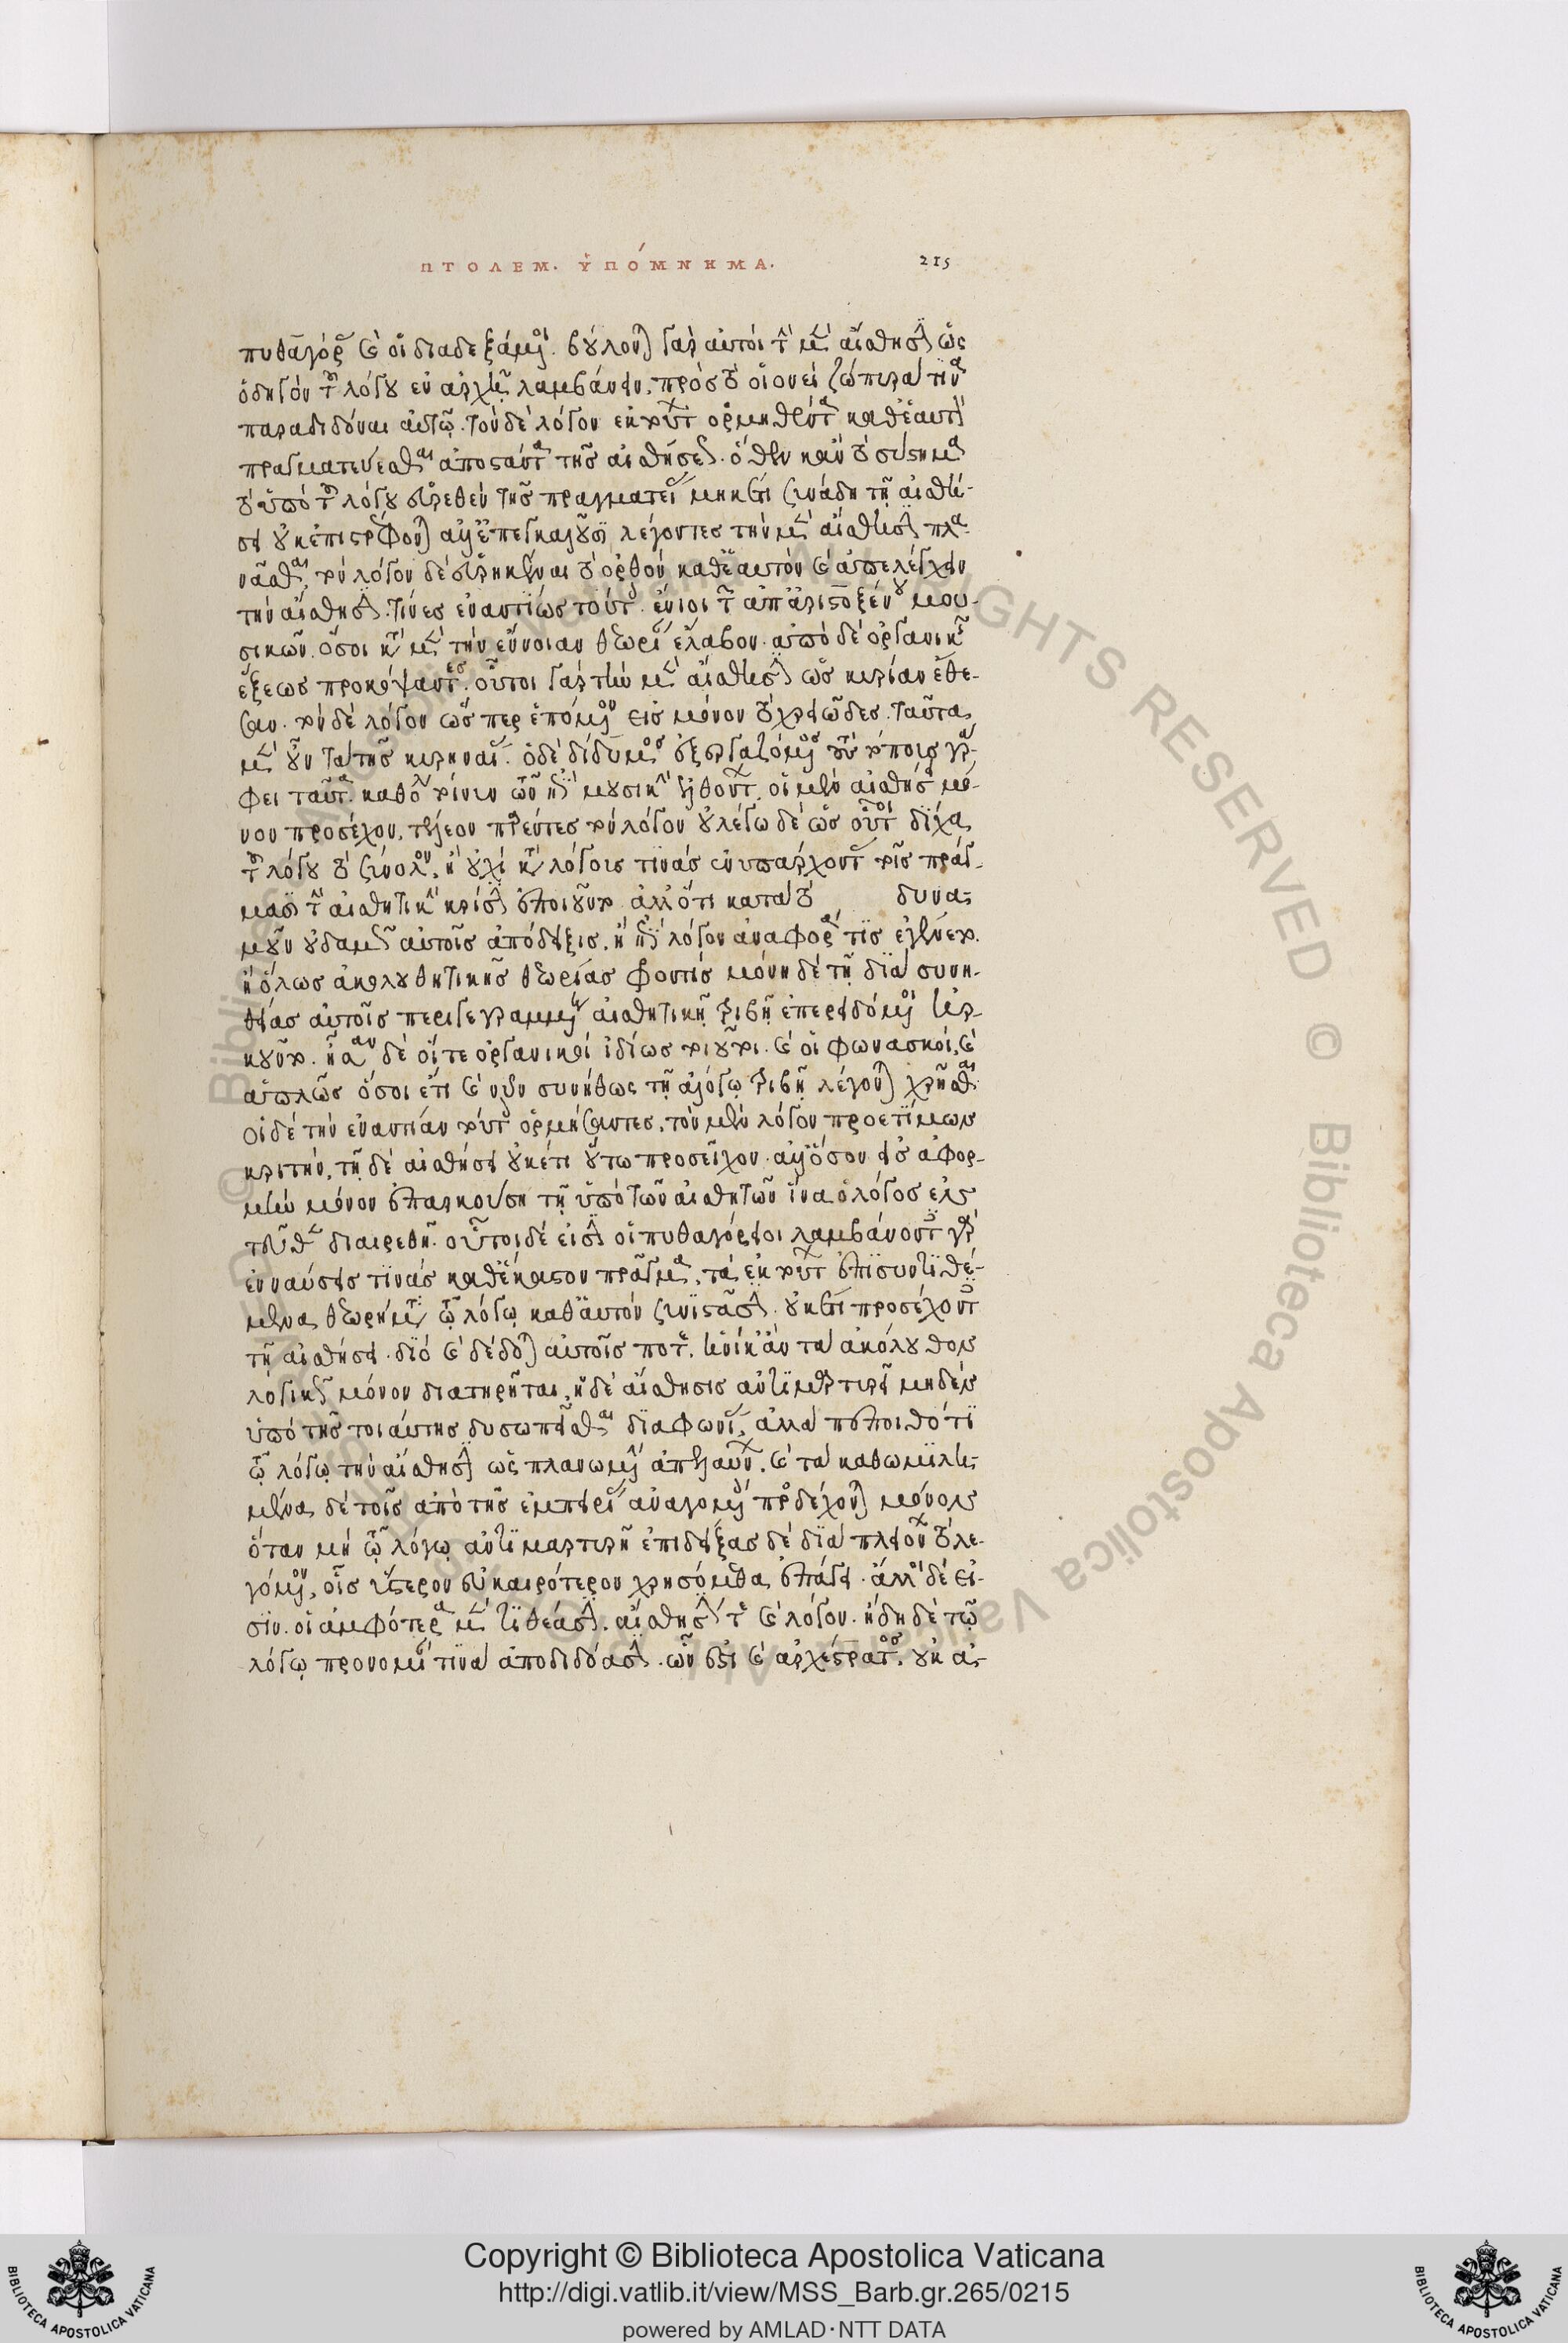 ΠΤΟΛΕΜ. ὙΠΌΜΝΗΜΑ. 215
πυθαγόρας καὶ οἱ διαδεξάμενοι. βούλονται γὰρ αὐτοὶ τὴν μὲν αἴσθησιν ὡς
ὁδηγὸν τοῦ λόγου ἐν ἀρχῇ λαμβάνειν. πρὸς τὸ οἱονεὶ ζώπυρά τινα
παραδιδόναι αὐτῷ. τὸν δὲ λόγον ἐκ τούτων ὁρμηθέντα καθ' ἑαυτὸν
πραγματεύεσθαι ἀποστάντα τῆς αἰσθήσεως. ὅθεν κἂν τὸ σύστημα
τὸ ὑπὸ τοῦ λόγου εὑρεθὲν τῆς πραγματείας μηκέτι συνάδη τῇ αἰσθή-
σει οὐκ ἐπιστρέφονται ἀλλ' ἐπεγκαλοῦσι λέγοντες τὴν μὲν αἴσθησιν πλα-
νᾶσθαι, τὸν λόγον δὲ εὑρηκέναι τὸ ὀρθὸν καθ' ἑαυτὸν καὶ ἀπελέγχειν
τὴν αἴσθησιν. τίνες ἐναντίως τούτοις. ἔνιοι τῶν ἀπ' ἀριστοξένου μου-
σικῶν. ὅσοι κατὰ μὲν τὴν ἔννοιαν θεωρίαν ἔλαβον. ἀπὸ δὲ ὀργανικῆς
ἕξεως προκόψαντες. οὗτοι γὰρ τὴν μὲν αἴσθησιν ὡς κυρίαν ἔθε-
σαν. τὸν δὲ λόγον ὥσπερ ἑπόμενον εἰς μόνον τὸ χρειῶδες. ταῦτα
μὲν οὖν τὰ τῆς κυρηναίας. ὁ δὲ δίδυμος ἐξεργαζόμενος τοὺς τόπους γρά-
φει ταῦτα. καθόλου τοίνυν τῶν ἐπὶ μουσικὴν ἐλθόντων. οἱ μὲν αἰσθήσει μό-
νον προσέχον. τέλεον παρέντες τὸν λόγον οὐ λέγω δὲ ὡς οὗτοι δίχα
τοῦ λόγου τὸ σύνολον, ἢ οὐχὶ κατὰ λόγους τινὰς ἐνυπάρχοντας τοῖς πράγ-
μασι τὴν αἰσθητικὴν κρίσιν ἐποιοῦντο ἀλλ' ὅτι κατὰ τὸ δυνα-
μοῦν οὐδαμῶς αὐτοῖς ἀπόδειξις. ἢ ἐπὶ λόγον ἀναφορά τις ἐγένετο.
ἢ ὅλως ἀκολουθητικῆς θεωρίας φροντὶς μόνῃ δὲ τῇ διὰ συνη-
θείας αὐτοῖς περιγεγραμμένῃ αἰσθητικῇ τριβῇ ἐπερειδόμενοι ἠρ-
κοῦντο. ἦσαν δὲ οἵ τε ὀργανικοὶ ἰδίως τοιοῦτοι. καὶ οἱ φωνασκοί, καὶ
ἁπλῶς ὅσοι ἔτι καὶ νῦν συνήθως τῇ ἀλόγῳ τριβῇ λέγονται χρῆσθαι
οἱ δὲ τὴν ἐναντίαν τούτοις ὁρμήσαντες. τὸν μὲν λόγον προετίμων
κριτήν, τῇ δὲ αἰσθήσει οὐκέτι οὕτω προσεῖχον. ἀλλ' ὅσον εἰς ἀφορ-
μὴν μόνον ἐπαρκούσῃ τῇ ὑπὸ τῶν αἰσθητῶν ἵνα ὁ λόγος
διαιρεθῇ. οὗτοι δέ εἰσιν οἱ πυθαγόρειοι λαμβάνοντες γὰρ
ἐνναύσεις τινὰς καθ' ἕκαστον πρᾶγμα, τὰ ἐκ τούτων ἐπισυντιθέ-
μενα θεωρήματα τῷ λόγῳ καθ' αὑτὸν συνιστᾶσιν. οὐκέτι προσέχοντες
τῇ αἰσθήσει. διὸ καὶ δέδοται αὐτοῖς ποτέ. ἡνίκ' ἂν τὰ ἀκόλουθον
λογικῶς μόνον διατηρῆται, ἡ δὲ αἴσθησις ἀντιμαρτυρεῖ μηδὲν
ὑπὸ τῆς τοιαύτης δυσωπεῖσθαι διαφωνίας, ἀλλὰ πεποιθότι
τῷ λόγῳ τὴν αἴσθησιν ὡς πλανωμένην ἀπελαύνειν. καὶ τὰ καθωμιλη-
μένα δὲ τοῖς ἀπὸ τῆς ἐμπειρίας ἀναγομένοις προσδέχονται μόνον
ὅταν μὴ τῷ λόγῳ ἀντιμαρτυρῇ ἐπιδείξας δὲ διὰ πλειόνων τὸ λε-
γόμενον, οἷς ὕστερον εὐκαιρότερον χρησόμεθα ἐπάγει. ἄλλοι δέ εἰ-
σιν. οἱ ἀμφότερα μὲν τιθέασιν. αἴσθησίν τε καὶ λόγον. ἤδη δὲ τῷ
λόγῳ προνομίαν τινὰ ἀποδιδόασιν. ὧν ἐστι καὶ ἀρχέστρατος. οὐκ ἀ-
Copyright © Biblioteca Apostolica Vaticana
http://digi.vatlib.it/view/MSS_Barb.gr.265/0215
powered by AMLAD·NTT DATA